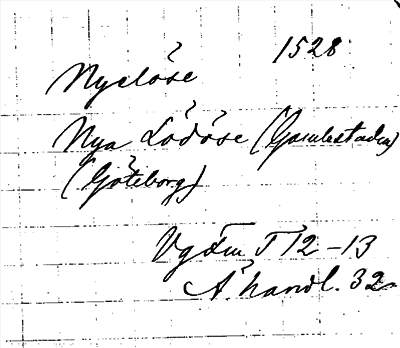 1528
Nyelöse
Nya Lödöse (Gamlestaden)
(Göteborg)
Vgötm T 12-13
Å. handl. 32